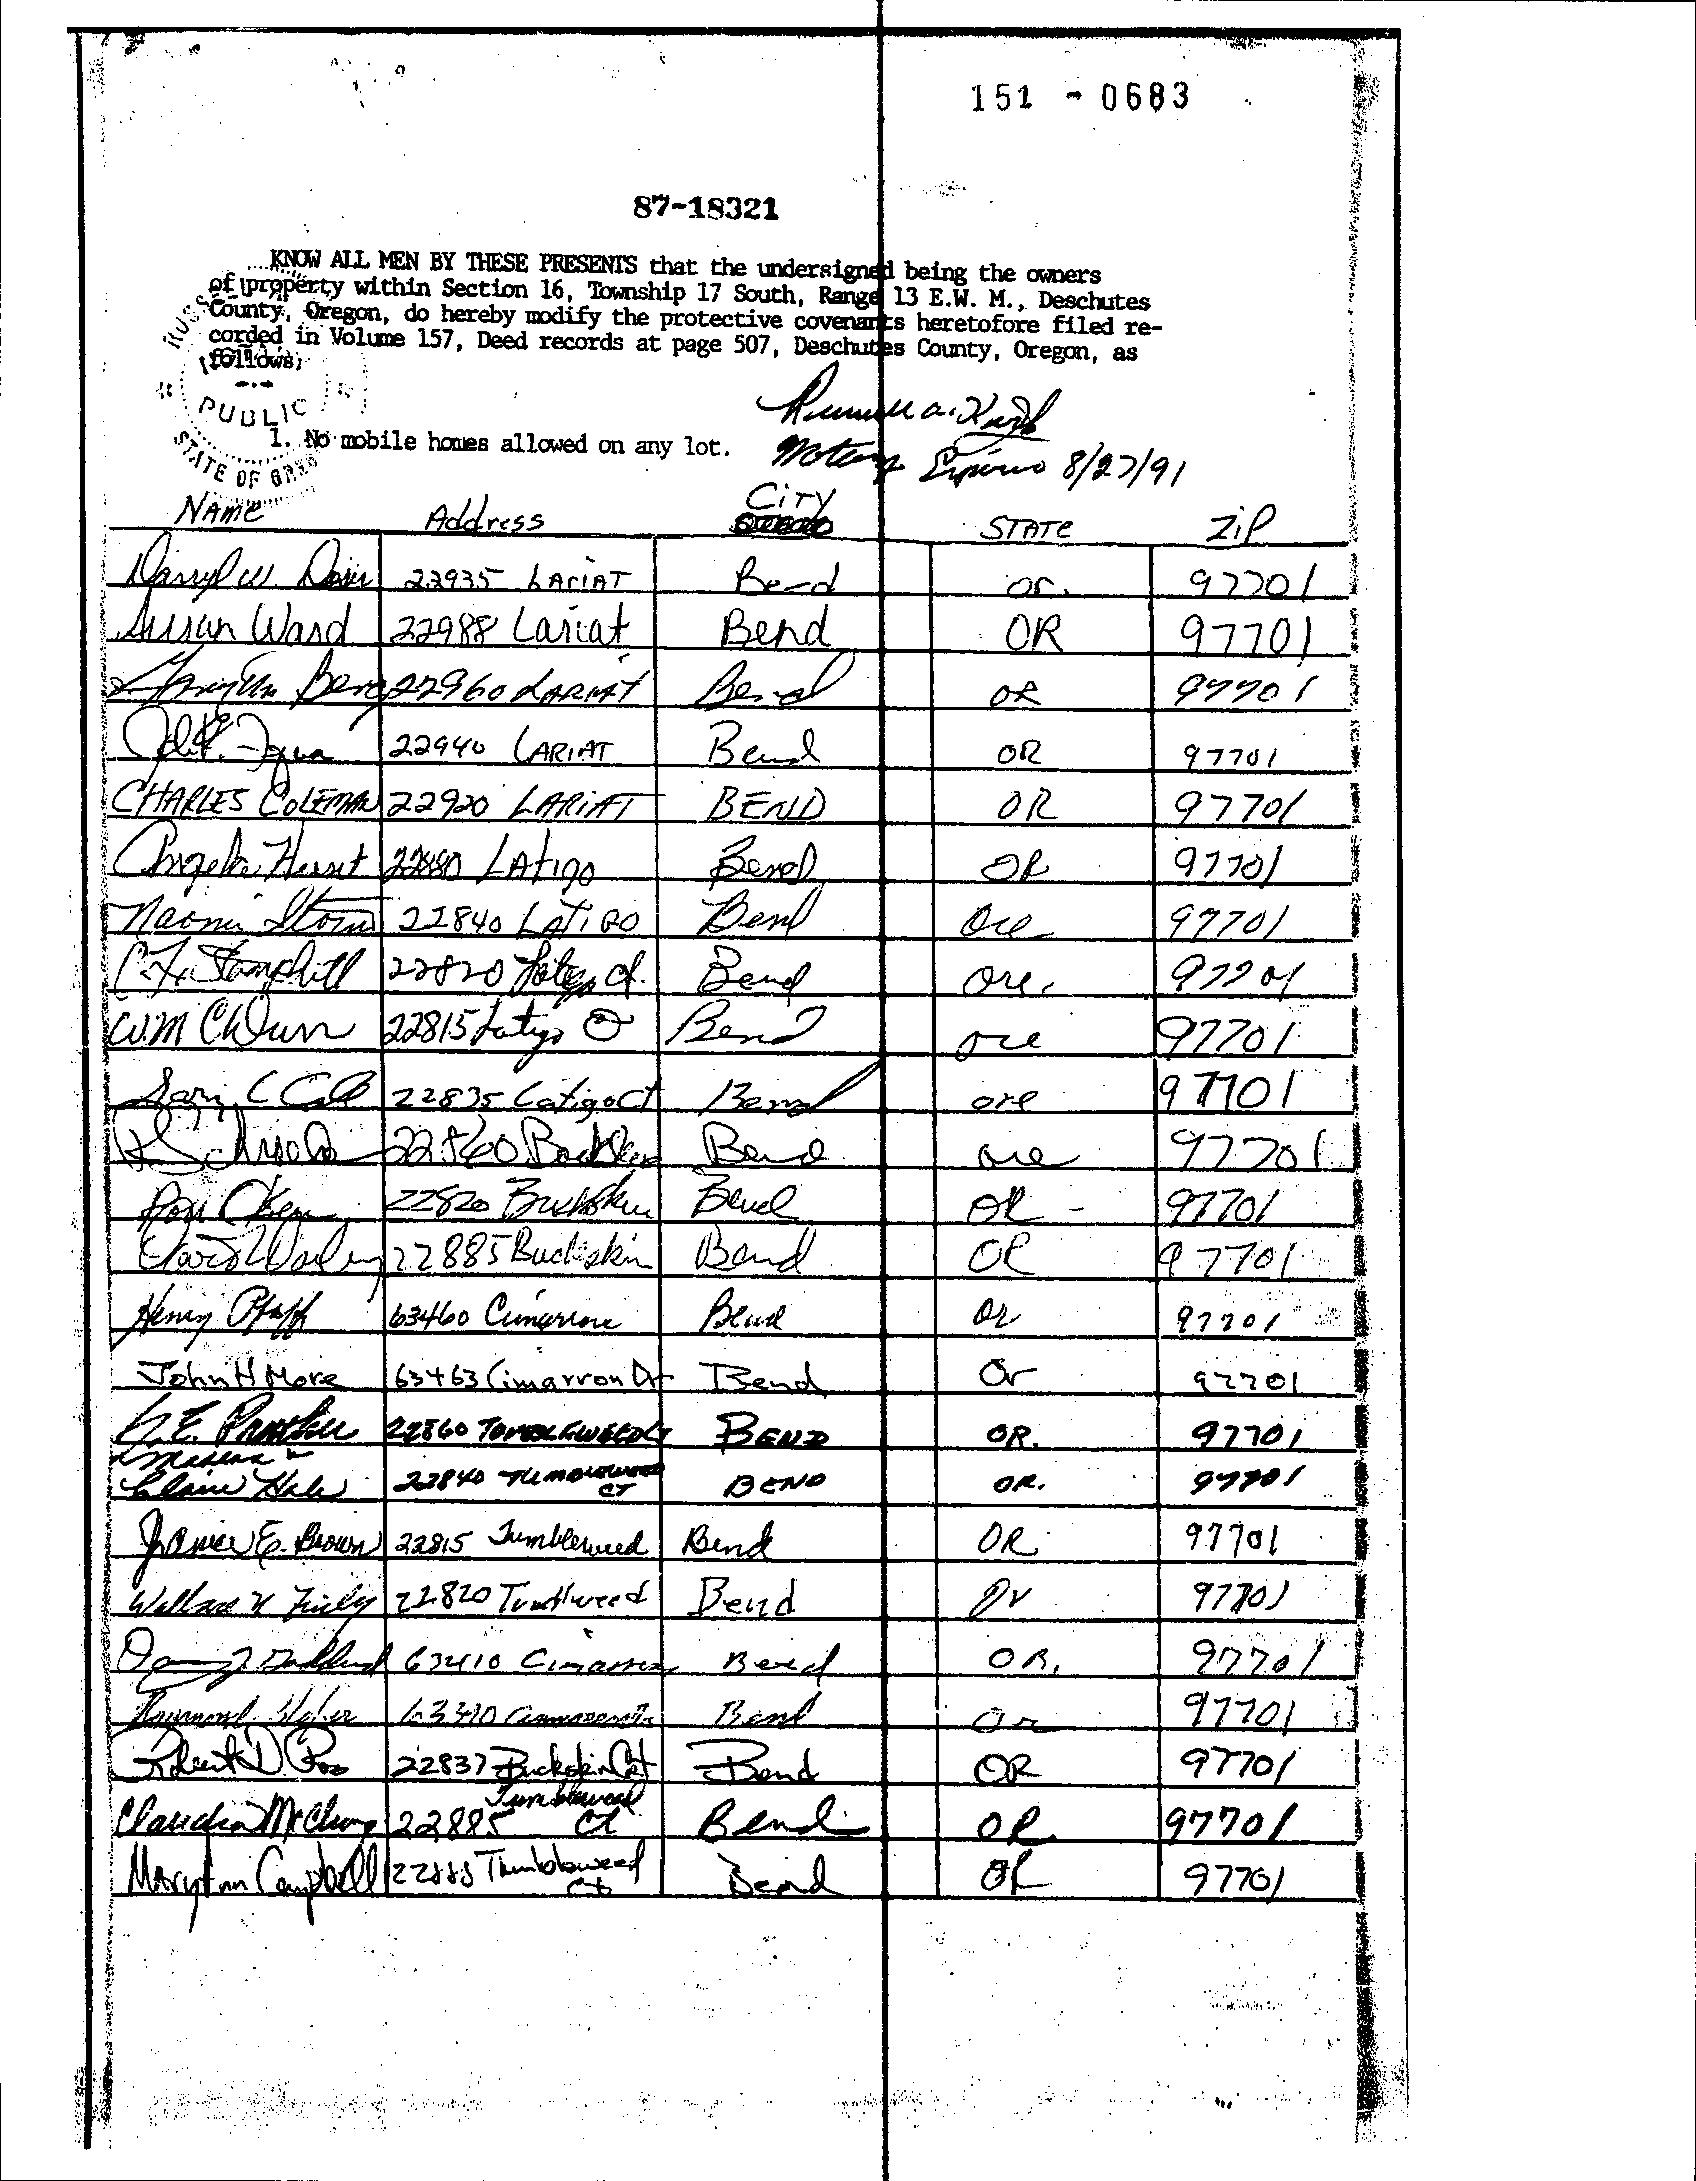 151 - 0683
87-18321
KNOW ALL MEN BY THESE PRESENTS that the undersigned being the owners
of property within Section 16, Township 17 South, Range 13 E.W. M., Deschutes
County, Oregon, do hereby modify the protective covenants heretofore filed re-
corded in Volume 157, Deed records at page 507, Deschutes County, Oregon, as
follows;
PUBLIC
STATE OF
1. No mobile homes allowed on any lot.
Notary Expires 8/27/91
Name Address City STATE Zip
Darryl W. Davis 22935 LARIAT Bend or. 97701
Susan Ward 22988 Lariat Bend OR 97701
22960 LARIAT Bend OR 97701
22940 LARIAT Bend OR 97701
CHARLES COLEMAN 22920 LARIAT BEND OR 97701
LATIGO Bend OR 97701
Naomi Storm 22840 LATIGO Bend Ore 97701
22820 Latigo Ct. Bend Ore. 97701
22815 Latigo Bend ore 97701
22835 Latigo Ct Bend ore 97701
22860 Bend ore 97701
22820 Buckskin Bend OR - 97701
22885 Buckskin Bend OR 97701
Henry Pfaff 63460 Cimarron Bend Or 97701
John H More 63463 Cimarron Dr Bend Or 97701
22860 Tumbleweed Ct BEND OR. 97701
Elaine Hale 22840 Tumbleweed CT BEND OR. 97701
Janice E. Brown 22815 Tumbleweed Bend OR 97701
22820 Tumbleweed Bend Or 97701
63410 Cimarron Bend OR. 97701
Raymond Bend Or 97701
Robert D 22837 Buckskin Ct Bend OR 97701
Claudia McClung 22885 Tumbleweed Ct Bend OR 97701
MaryAnn Campbell 22885 Tumbleweed Ct Bend OR 97701